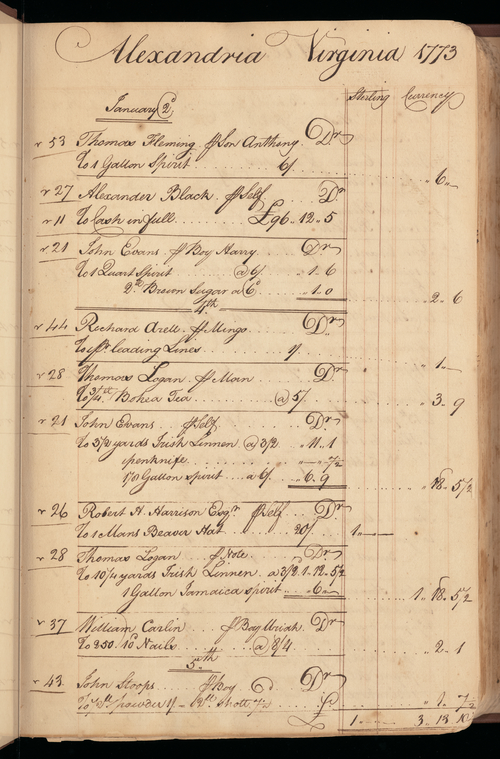 Alexandria Virginia 1773
Sterling Currency
January 2d
53 Thomas Fleming. Son Anthony. Dr
To 1 Gallon Spirit 6/ " 6 "
27 Alexander Black. Self Dr
11 To Cash in full £96 " 12 " 5
21 John Evans. Boy Harry. Dr
To 1 Quart Spirit @ 6/ " 1 " 6
2lb Brown Sugar a 6d " 1 " 0 " 2 " 6
4th
44 Richard Arell. Mingo Dr
To leading Lines 1/ " 1 "
28 Thomas Logan. Man Dr
To 3/4lb Bohea Tea @ 5/ " 3 " 9
21 John Evans. Self Dr
To 3 1/2 yards Irish Linnen @ 3/2 " 11 " 1
penknife " " 7 1/2
Gallon spirit a 6/. " 6 " 9 " 18 " 5 1/2
26 Robert H. Harrison Esqr Self Dr
To 1 Mans Beaver Hat 20/ 1 "
28 Thomas Logan Note Dr
To 10 1/4 yards Irish Linnen a 3/2 1 " 12 " 5 1/2
1 Gallon Jamaica spirit " 6 " 1 " 18 " 5 1/2
37 William Carlin Boy Uriah Dr
To 250. 10d Nails @ 8/4 " 2 " 1
5th
43 John Stoops Boy Dr
To powder 1/ Shott 7 1/2 " 1 " 7 1/2
1 " 3 " 13 " 10 1/2